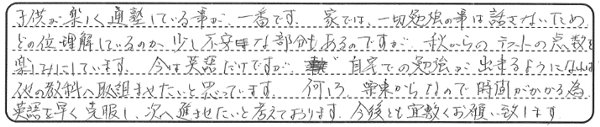 子供が楽しく通塾している事が、一番です。家では、一切勉強の事は話さないため
どの位理解しているのか、少し不安な部分もあるのですが、秋からのテストの点数を
楽しみにしています。今は英語だけですが、自宅での勉強が出来るようになれば
他の教科へ取組ませたいと思っています。何しろ、基礎からなので時間がかかる為
英語を早く克服し、次へ進ませたいと考えております。今後とも宜敷くお願い致します